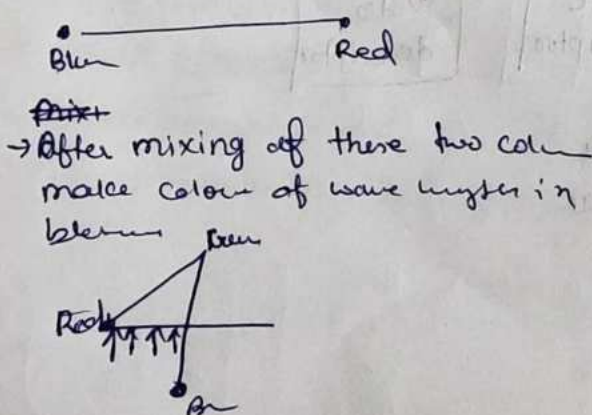 Blue
Red
→ After mixing of these two colour
make colour of wave length in
between
Green
Red
Blue